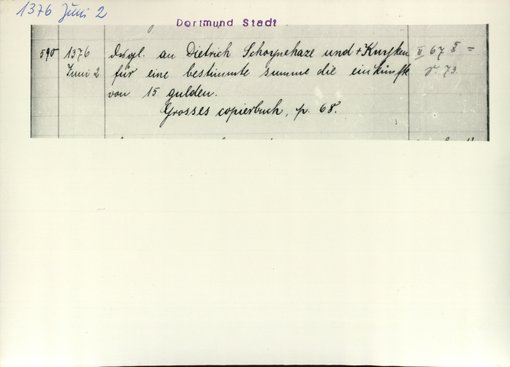 1376 Juni 2
Dortmund Stadt
590 1376 Dsgl. an Dietrich Schorpehaze und + Kunften II 67 5 =
Juni 2 für eine bestimmte summe die einkünfte N. 73.
von 15 gulden.
Grosses copierbuch, p. 68.